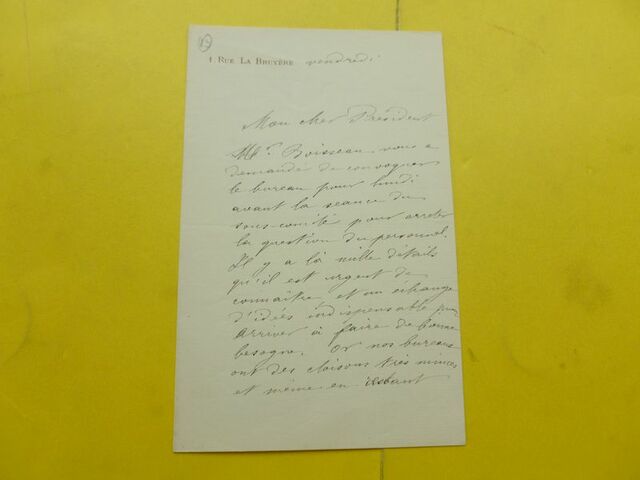 1 RUE LA BRUYÈRE vendredi
Mon cher Président
Mr. Boisseau vous a
demandé de convoquer
le bureau pour lundi
avant la séance du
sous-comité pour arrêter
la question du personnel.
Il y a là mille détails
qu'il est urgent de
connaître et un échange
d'idées indispensable pour
arriver à faire de bonne
besogne. Or nos bureaux
ont des cloisons très minces
et même en restant